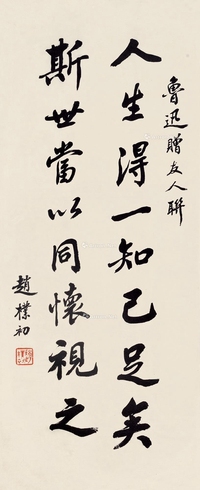 魯迅贈友人聯
人生得一知己足矣
斯世當以同懷視之
趙樸初